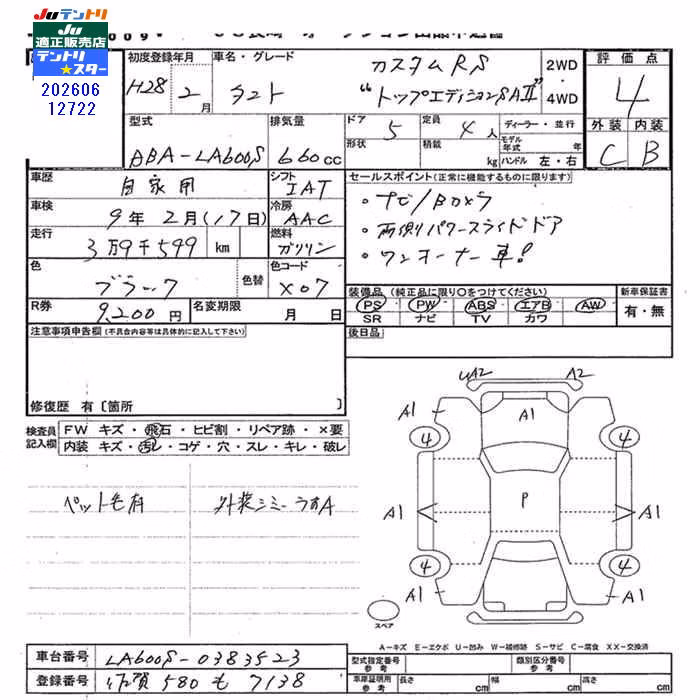 Juテントリ
Ju
適正販売店
テントリ
★スター
202606
12722
初度登録年月
車名・グレード
H28年 2月
タント
カスタムRS
"トップエディションSAⅡ"
2WD
・
4WD
評価点
4
外装 内装
C B
型式
ABA-LA600S
排気量
660cc
ドア 5
定員 4人
形状
積載 kg
ディーラー・並行
モデル年式 年
ハンドル 左・右
車歴
自家用
シフト
IAT
車検
9年 2月(17日)
冷房
AAC
走行
3万9千599 km
燃料
ガソリン
色
ブラック
色替
色コード
X07
R券
9,200円
名変期限
月 日
セールスポイント(正常に機能するものに限ります)
・ナビ/Bカメラ
・両側パワースライドドア
・ワンオーナー車!
装備品(純正品に限り○をつけてください)
PS PW ABS エアB AW
SR ナビ TV カワ
新車保証書
有・無
後日品
注意事項申告欄(不具合内容等は具体的に記入して下さい)
修復歴 有〔箇所 〕
検査員
記入欄
FW キズ・飛石・ヒビ割・リペア跡・×要
内装 キズ・汚レ・コゲ・穴・スレ・キレ・破レ
ペット毛有
外装シミ〜うすA
A2 A2
A1 A1 A1
4 4
A1 P A1
4 4
A1 A1
スペア
A-キズ E-エクボ U-凹み W-補修跡 S-サビ C-腐食 XX-交換済
車台番号
LA600S-0383523
登録番号
佐賀 580 も 7138
型式指定番号
参考
類別区分番号
参考
車庫証明用
参考
長さ cm
幅 cm
高さ cm